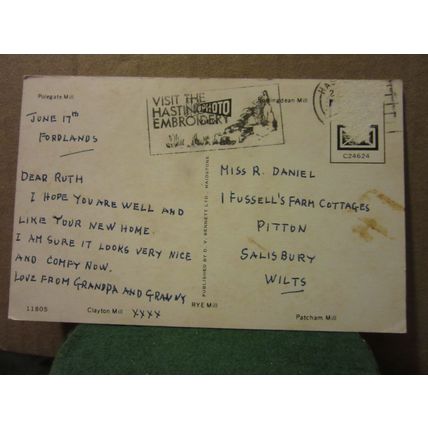 Polegate Mill
VISIT THE
HASTINGS
EMBROIDERY
JUNE 17th
FORDLANDS
DEAR RUTH
I HOPE YOU ARE WELL AND
LIKE YOUR NEW HOME.
I AM SURE IT LOOKS VERY NICE
AND COMFY NOW.
LOVE FROM GRANDPA AND GRANNY
XXXX
PUBLISHED BY D. V. BENNETT LTD. MAIDSTONE
C24624
MISS R. DANIEL
1 FUSSELL'S FARM COTTAGES
PITTON
SALISBURY
WILTS
11805
Clayton Mill
RYE Mill
Patcham Mill